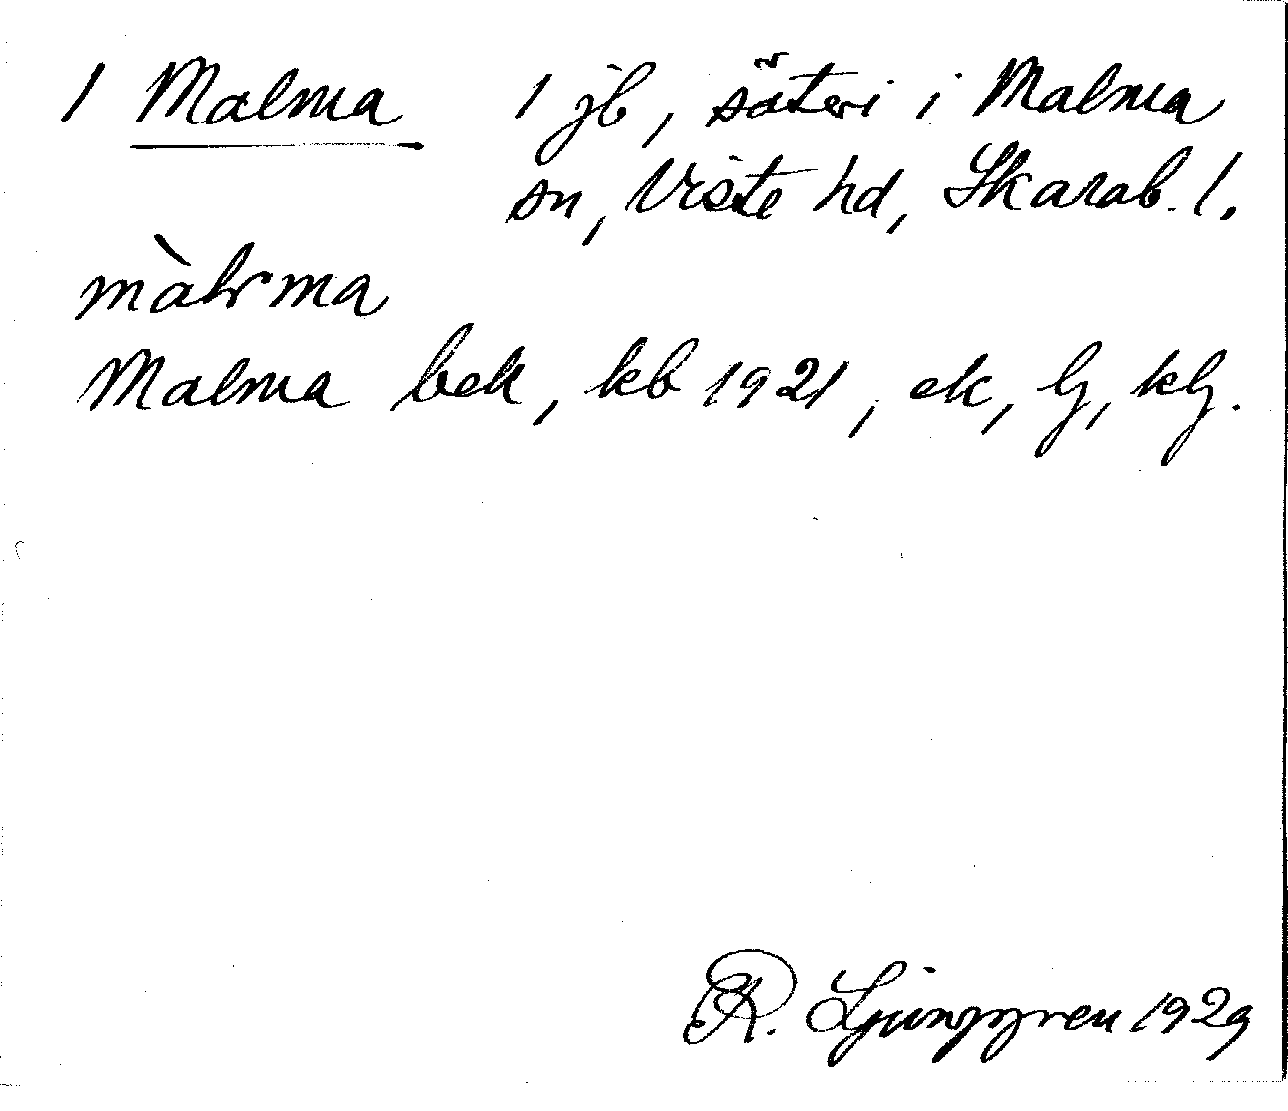 1 Malma 1 jb, säteri i Malma
sn, Viste hd, Skarab. l.
màlrma
Malma bek, kb 1921, ek, lj, klj.
R. Ljunggren 1929